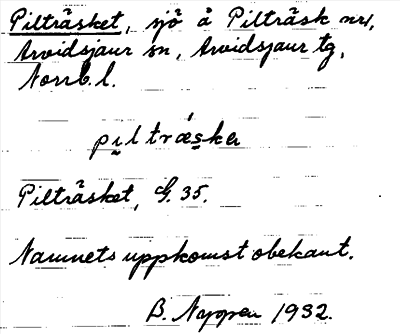 Pilträsket, sjö å Pilträsk nr1,
Arvidsjaur sn, Arvidsjaur tg,
Norrb. l.
Pilträsket, G. 35.
Namnets uppkomst obekant.
B. 1932.